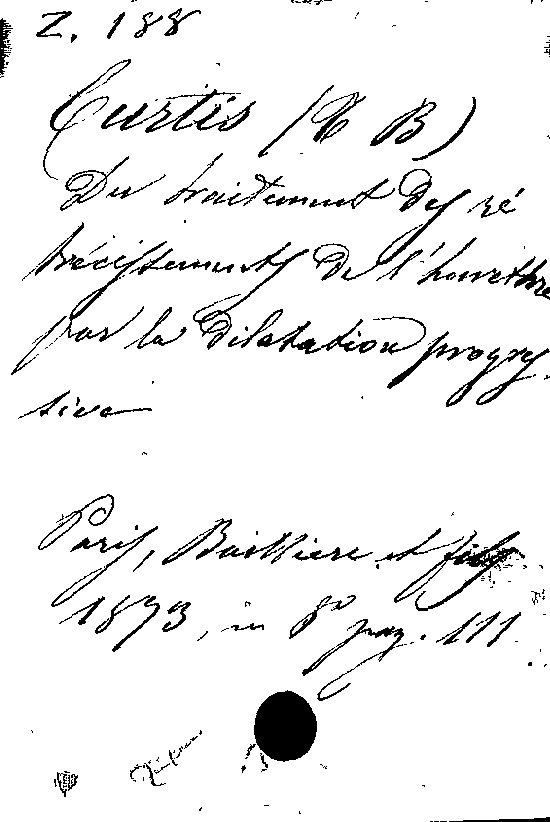 Z. 188
Curtis (T B)
Du traitement des ré
trécissements de l'hourethre
par la dilatation progres
sive
Paris, Baillière et fils
1873, in 8° pag. 111